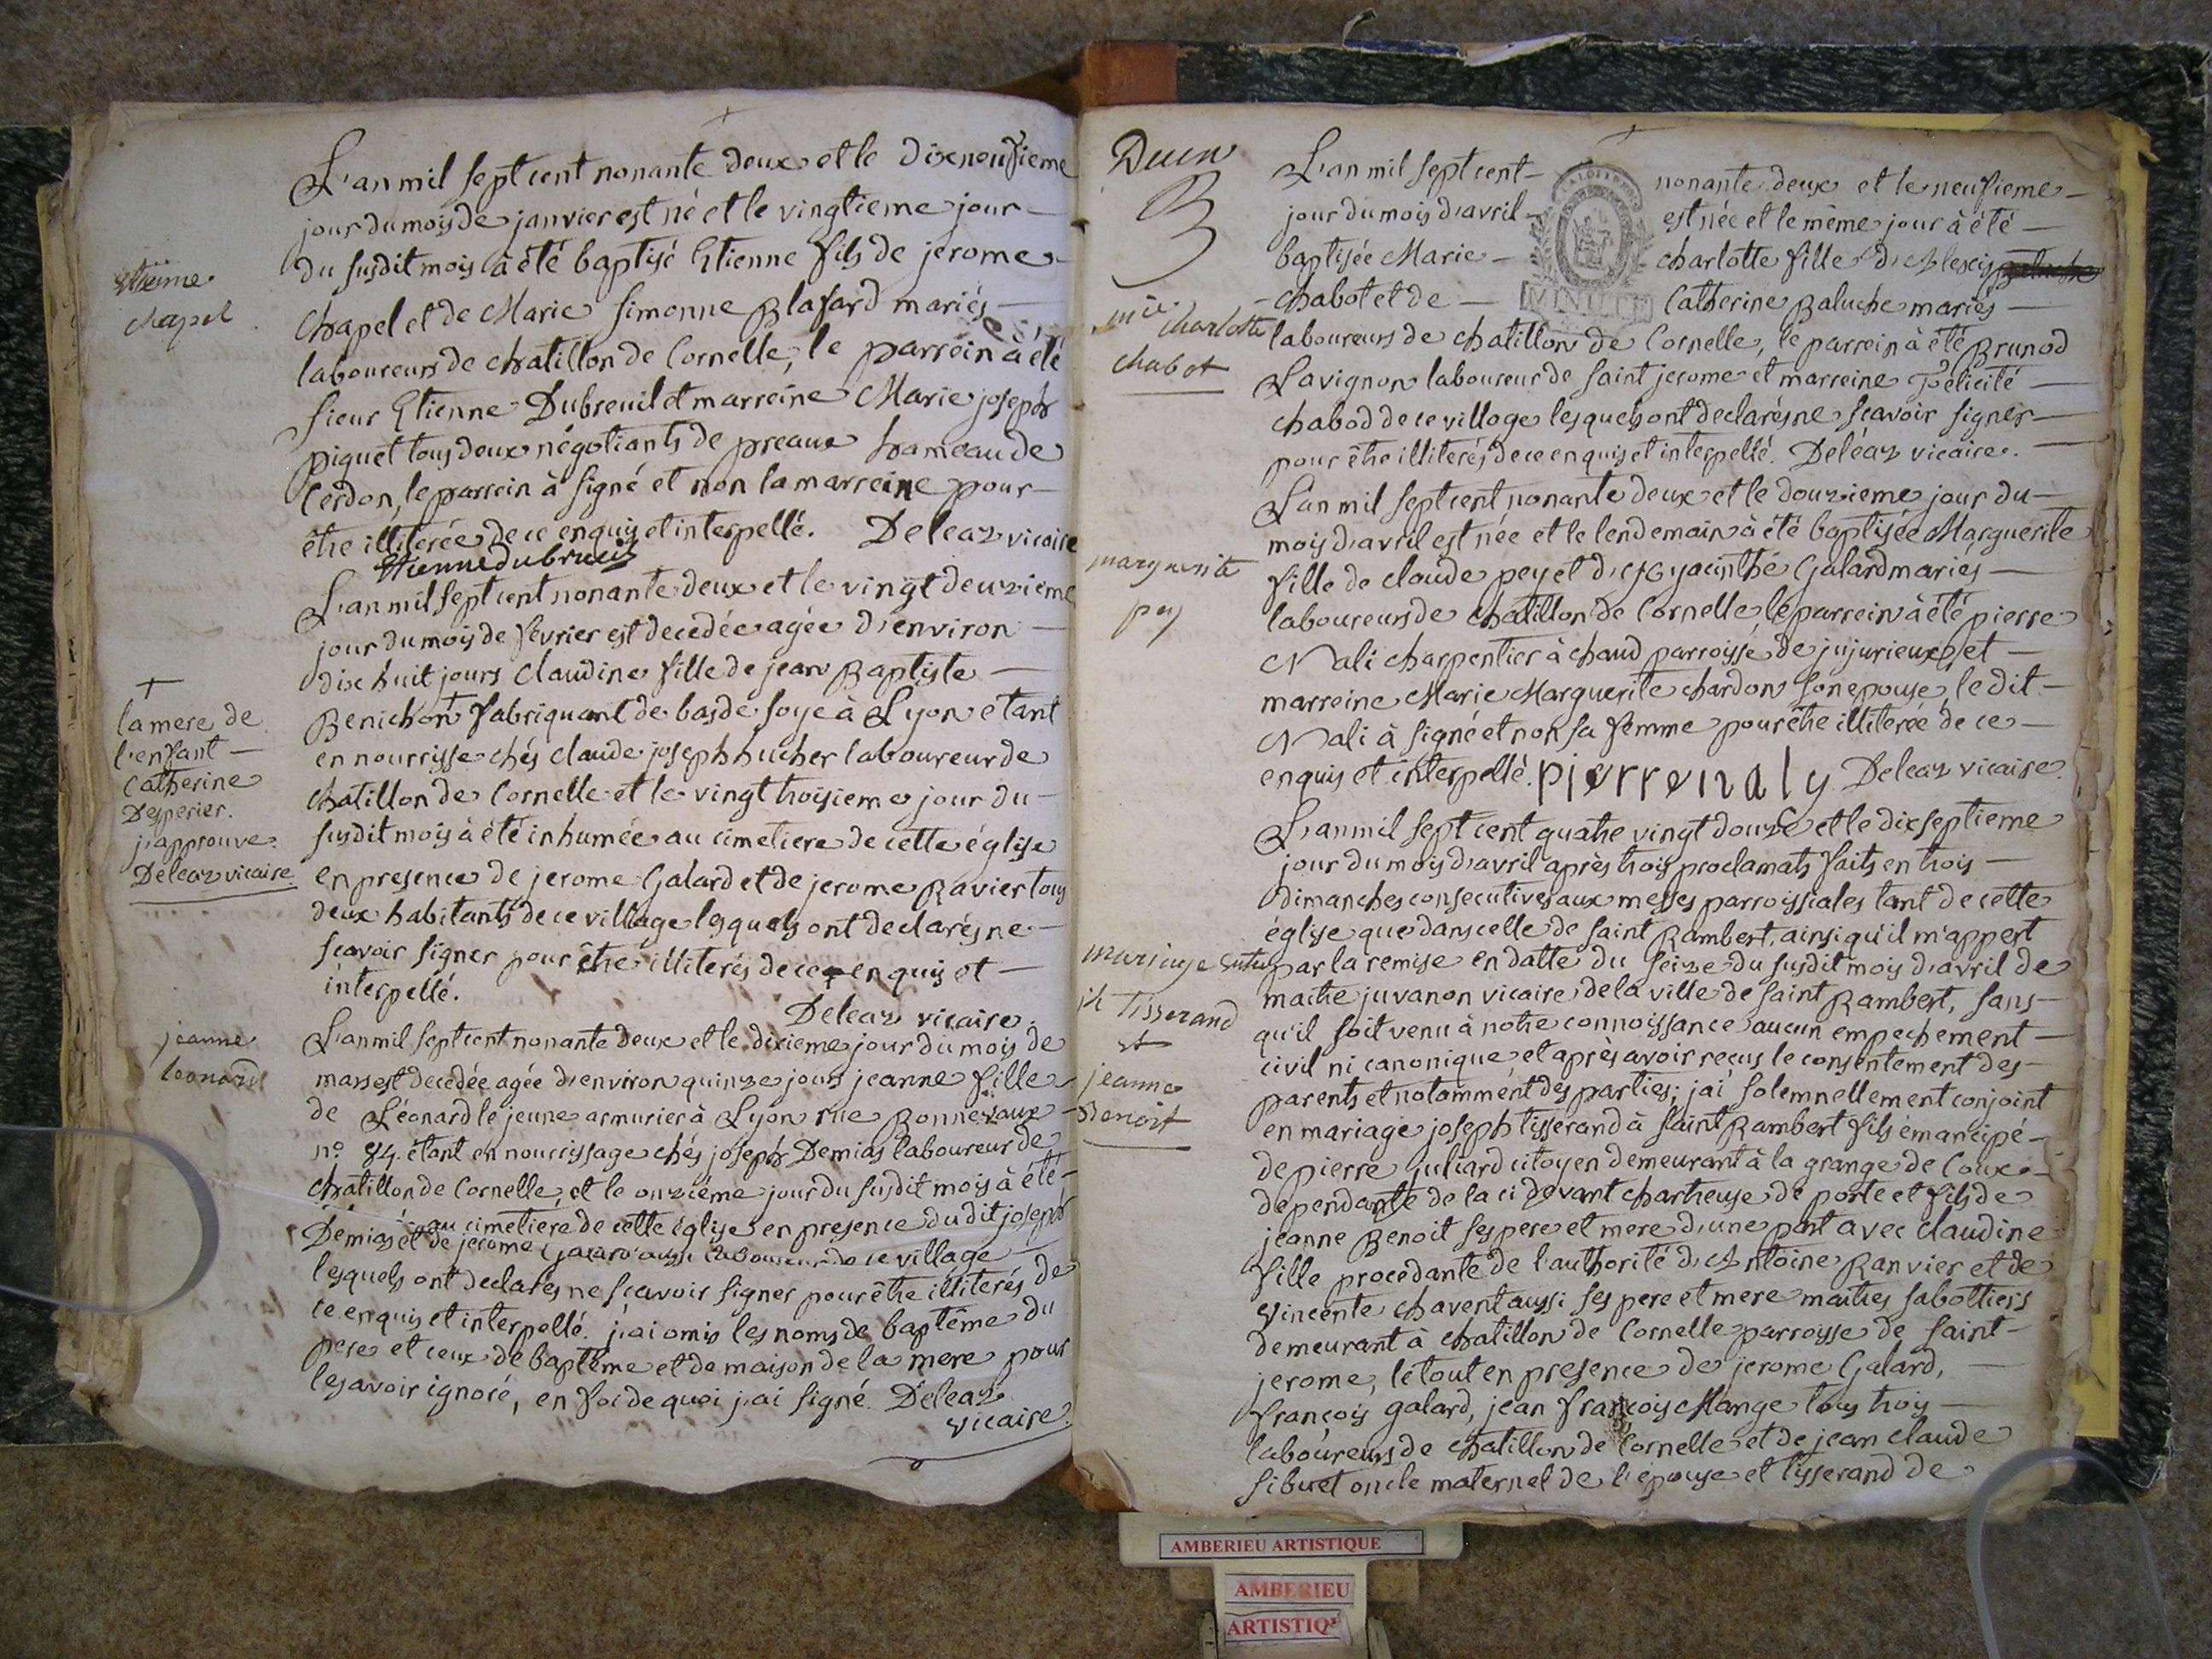 L'an mil sept cent nonante deux et le dixneufieme
jour du mois de janvier est né et le vingtieme jour
du susdit mois à été baptisé Etienne fils de jerome
Chapel et de Marie Simonne Blafard mariés
laboureurs de chatillon de Cornelle, le parrein à été
sieur Etienne Dubreuil et marreine Marie joseph
piquet tous deux négotiants de preaux hameau de
Cerdon, le parrein à signé et non la marreine pour
être illiterée de ce enquis et interpellé. Deleaz vicaire
Etienne dubrueil
Etienne
chapel
L'an mil sept cent nonante deux et le vingt deuzieme
jour du mois de fevrier est decedée agée d'environ
dix huit jours Claudine fille de jean Baptiste
Benichon + fabriquant de bas de soye à Lyon etant
en nourrisse chés claude joseph hucher laboureur de
chatillon de Cornelle et le vingt troisieme jour du
susdit mois à été inhumée au cimetiere de cette église
en presence de jerome Galard et de jerome Ravier tous
deux habitants de ce village lesquels ont declarés ne
scavoir signer pour être illiterés de ce enquis et
interpellé.
Deleaz vicaire.
+
la mere de
l'enfant
Catherine
Desperier.
j'approuve
Deleaz vicaire.
L'an mil sept cent nonante deux et le dixieme jour du mois de
mars est decedée agée d'environ quinze jours jeanne fille
de Léonard le jeune armurier à Lyon rue Bonnevaux
n° 84. étant en nourrissage chés joseph Demias laboureur de
chatillon de Cornelle, et le onzième jour du susdit mois à été
au cimetiere de cette église en presence du dit joseph
Demias et de jerome Galard aussi laboureur de ce village
lesquels ont declarés ne scavoir signer pour être illiterés de
ce enquis et interpellé. j'ai omis les noms de baptême du
pere et ceux de baptême et de maison de la mere pour
les avoir ignoré, en foi de quoi j'ai signé. Deleaz
vicaire.
jeanne
leonard
L'an mil sept cent nonante deux et le neufieme
jour du mois d'avril est née et le même jour à été
baptisée Marie charlotte fille d'Alexis
chabot et de Catherine Baluche mariés
laboureurs de chatillon de Cornelle, le parrein à été Brunod
Savignon laboureur de saint jerome et marreine Félicité
chabod de ce village lesquels ont declarés ne scavoir signer
pour être illiterés de ce enquis et interpellé. Deléaz vicaire.
MINUTE
mie charlotte
chabot
L'an mil sept cent nonante deux et le douzieme jour du
mois d'avril est née et le lendemain à été baptisée Marguerite
fille de claude pey et d'hyacinthe Galard mariés
laboureurs de chatillon de Cornelle, le parrein à été pierre
Nali charpentier à chaud parroisse de jujurieux et
marreine Marie Marguerite chardon son epouse, le dit
Nali à signé et non sa femme pour être illiterée de ce
enquis et interpellé. pierre naly Deleaz vicaire.
marguerite
pey
L'an mil sept cent quatre vingt douze et le dixseptieme
jour du mois d'avril après trois proclamats faits en trois
dimanches consecutives aux messes parroissiales tant de cette
église que dans celle de saint Rambert, ainsi qu'il m'appert
par la remise en datte du seize du susdit mois d'avril de
maitre juvanon vicaire de la ville de saint Rambert, sans
qu'il soit venu à notre connoissance aucun empechement
civil ni canonique et après avoir reçus le consentement des
parents et notamment des parties; j'ai solemnellement conjoint
en mariage joseph tisserand à saint Rambert fils émancipé
de pierre juliard citoyen demeurant à la grange de Coux
dependante de la ci devant chartreuse de porte et fils de
jeanne Benoit ses pere et mere d'une part avec claudine
fille procedante de l'authorité d'Antoine Ranvier et de
vincente chavent aussi ses pere et mere maitres sabottiers
demeurant à chatillon de Cornelle parroisse de saint
jerome, le tout en presence de jerome Galard,
françois galard, jean françois Mange tous trois
laboureurs de chatillon de Cornelle et de jean claude
sibuet oncle maternel de l'épouse et tisserand de
mariage entre
jh tisserand
et
jeanne
Benoit
AMBERIEU ARTISTIQUE
AMBERIEU
ARTISTIQ